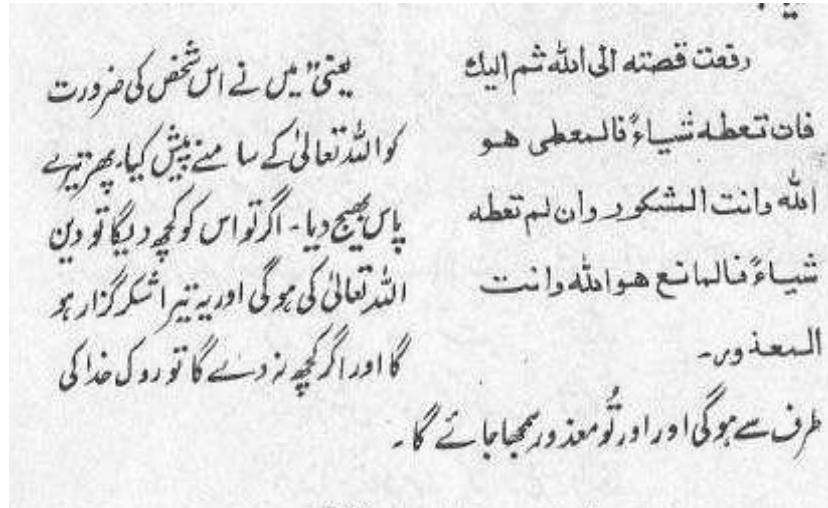 رفعت قصته الى الله ثم اليك
فان تعطه شياءً فالمعطى هو
الله وانت المشكور وان لم تعطه
شياءً فالمانع هو الله وانت
المعذور۔
یعنی "میں نے اس شخص کی ضرورت
کو اللہ تعالیٰ کے سامنے پیش کیا۔ پھر تیرے
پاس بھیج دیا۔ اگر تو اس کو کچھ دیگا تو دین
اللہ تعالیٰ کی ہوگی اور یہ تیرا شکر گزار ہو
گا اور اگر کچھ نہ دے گا تو روک خدا کی
طرف سے ہوگی اور اور تُو معذور سمجھا جائے گا۔